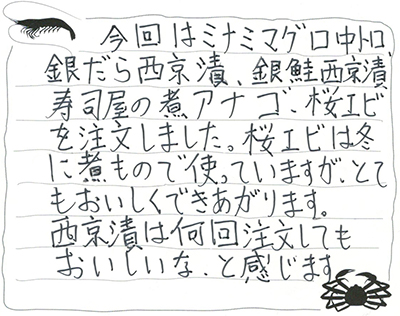 今回はミナミマグロ中トロ、
銀だら西京漬、銀鮭西京漬
寿司屋の煮アナゴ、桜エビ
を注文しました。桜エビは冬
に煮もので使っていますが、とて
もおいしくできあがります。
西京漬は何回注文しても
おいしいな、と感じます